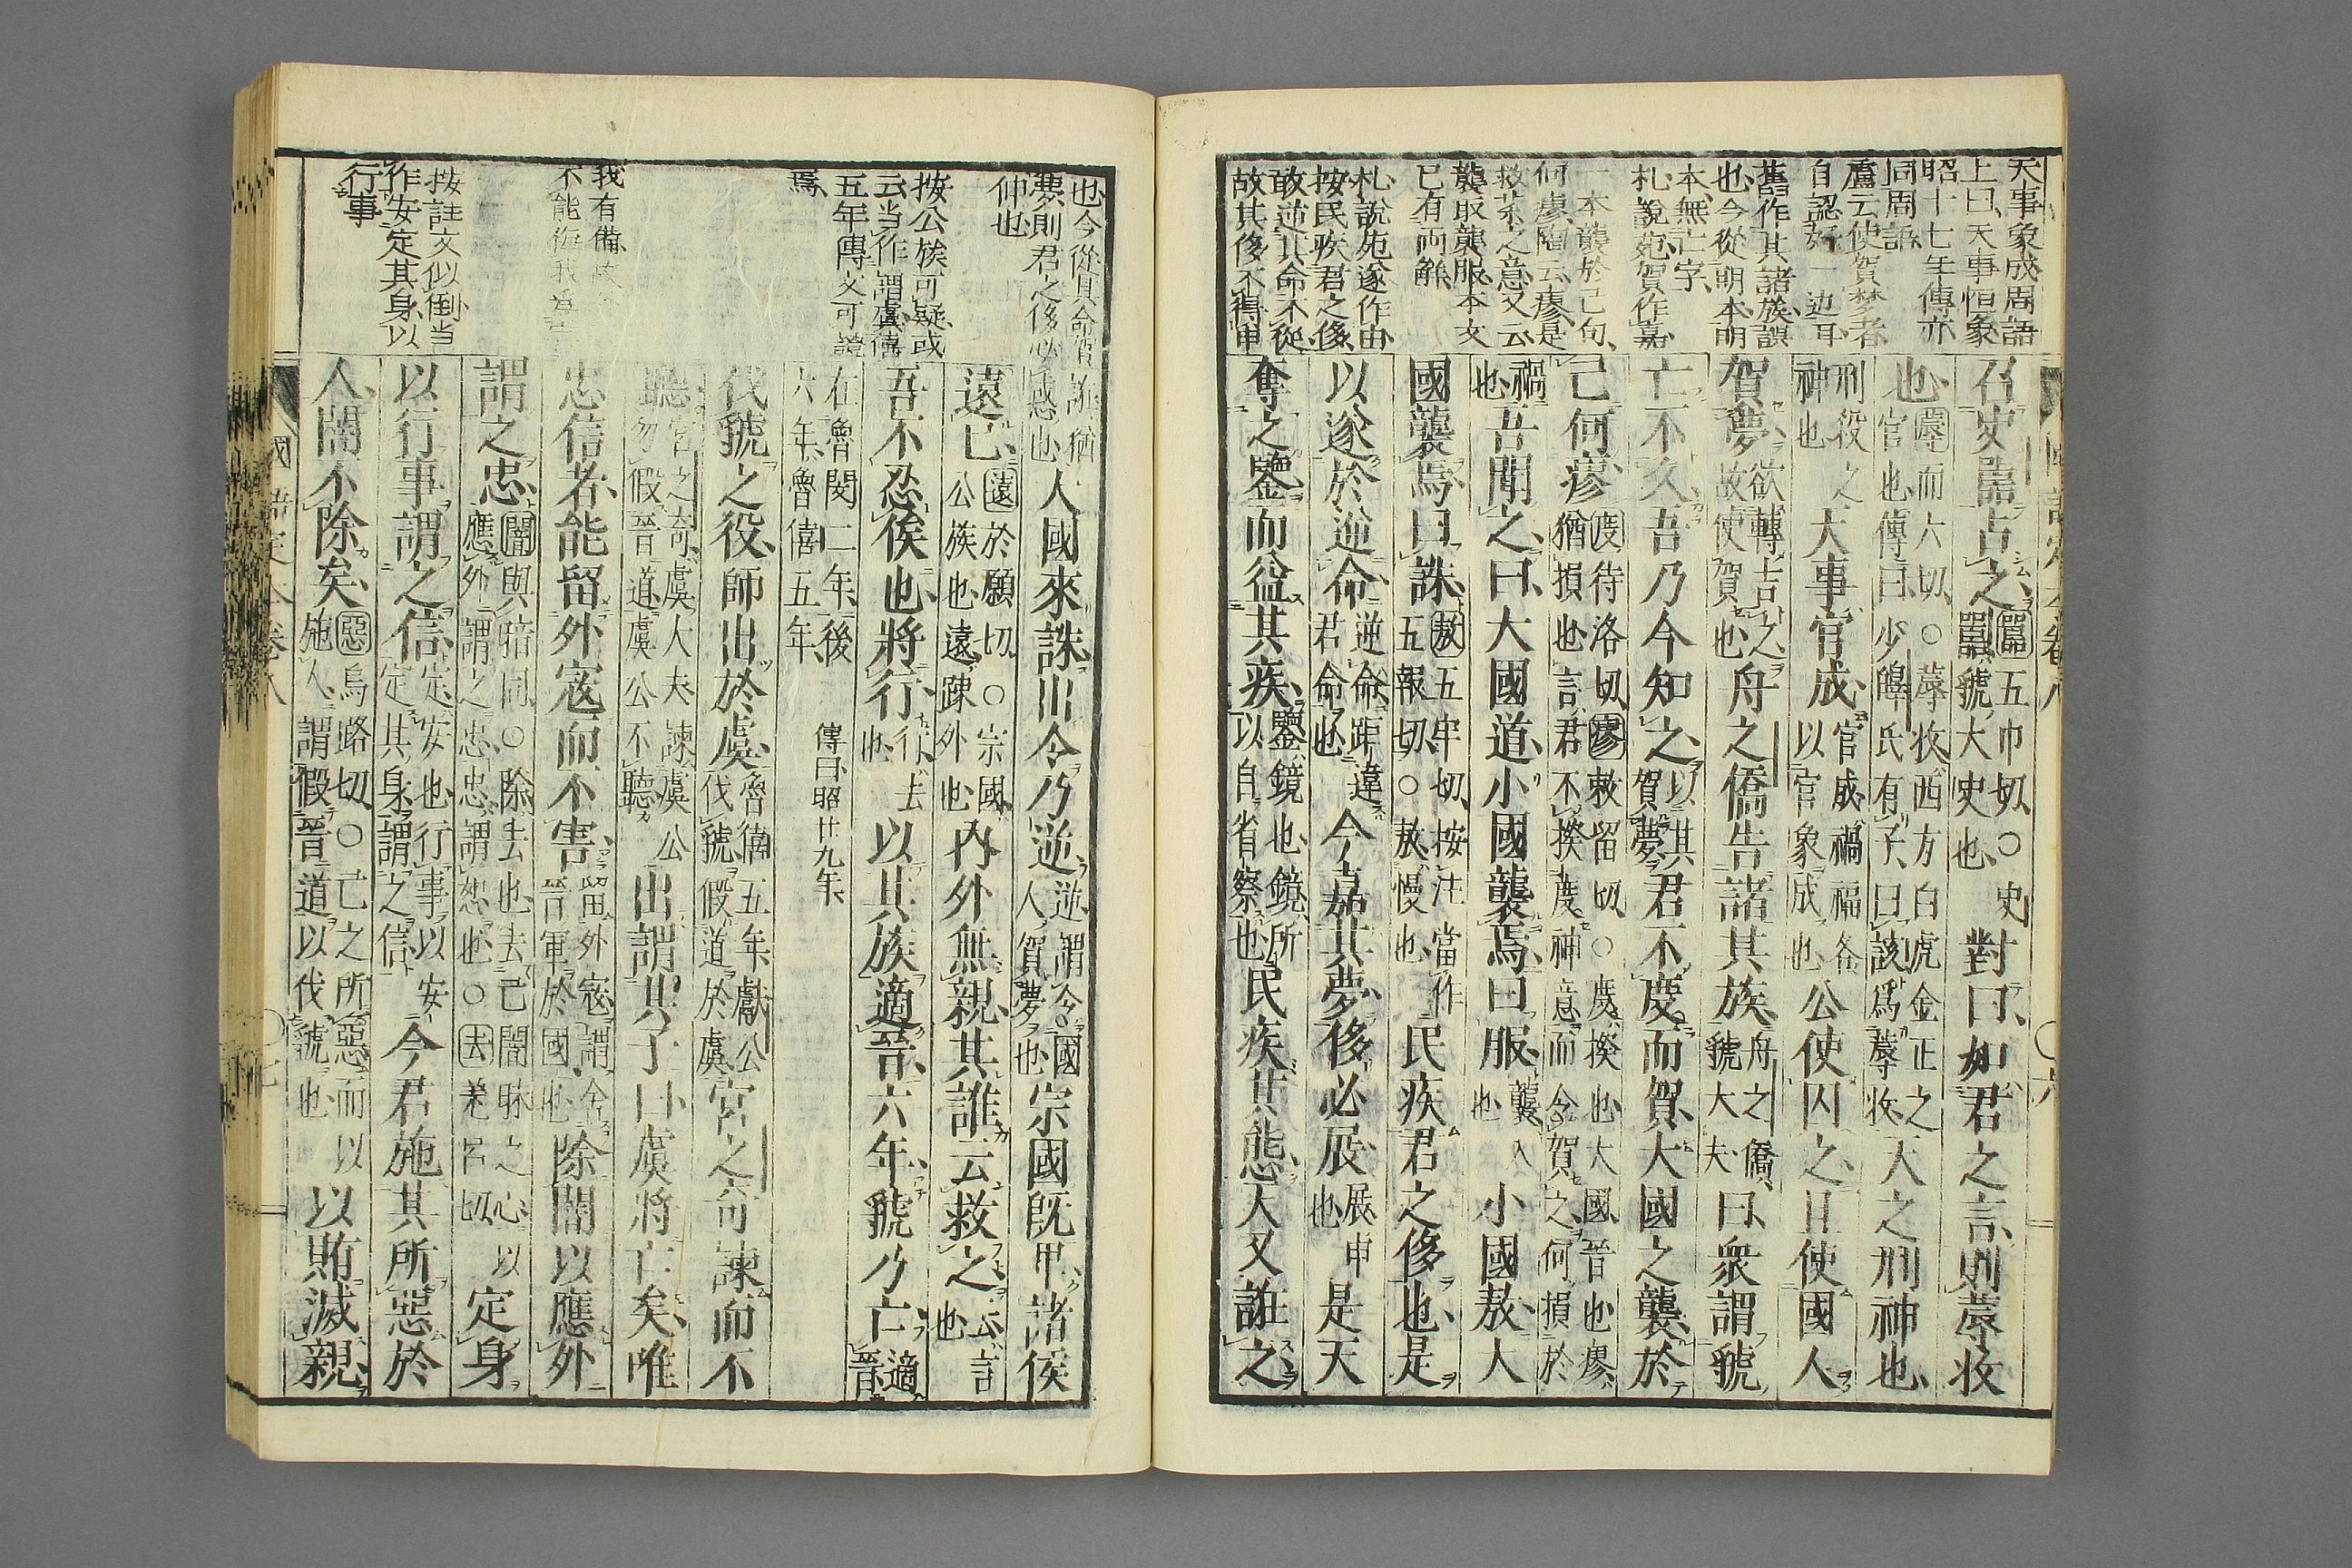 天事象成周語
上曰天事恒象
昭十七年傳亦
同周語
盧云使賀夢者
自認好一边耳
舊作其諸族誤
也今從明本明
本無亡字
札說苑賀作嘉
一本襲於己句
何瘳陶云瘳是
救某之意又云
襲取襲服本文
已有両解
札說苑遂作由
按民疾君之侈
敢逆其命不從
故其侈不得申
召史嚚占之嚚五巾切○史嚚虢大史也對曰如君之言則蓐收
也蓐而六切○蓐收西方白虎金正之官也傳曰少皥氏有子曰該爲蓐收天之刑神也
刑殺之神也天事官成官成禍福各以官象成也公使囚之且使國人
賀夢欲轉吉之故使賀也舟之僑告諸其族舟之僑虢大夫曰衆謂虢
亡不久吾乃今知之以其賀夢君不度而賀大國之襲於
己何瘳度待洛切瘳敕留切○度揆也大國晉也瘳猶損也言君不揆度神意而令賀之何損於
禍也吾聞之曰大國道小國襲焉曰服襲入也小國敖大
國襲焉曰誅敖五牢切按注當作五報切○敖慢也民疾君之侈也是
以遂於逆命逆命距違君命也今嘉其夢侈必展展申也是天
奪之鑒而益其疾鑒鏡也鏡所以自省察也民疾其態天又誑之
也今從其命賀誑猶
夢則君之侈必惑也
伸也
按公族可疑或
云当作謂虞僖
五年傳文可證
焉
我有備故
不能侮我
按註文似倒当
作安定其身以
行事
大國來誅出令乃逆逆謂令國人賀夢也宗國旣甲諸侯
遠己遠於願切○宗國公族也遠踈外也內外無親其誰云救之云言也
吾不忍俟也將行行去也以其族適晉六年虢乃亡適晉
在魯閔二年後六年魯僖五年傳曰昭廿九年
伐虢之役師出於虞魯僖五年獻公伐虢假道於虞宮之奇諫而不
聽宮之奇虞大夫諫虞公勿假晉道虞公不聽出謂其子曰虞將亡矣唯
忠信者能留外寇而不害留外寇謂舍晉軍於國也除闇以應外
謂之忠闇與暗同○除去也去己闇昧之心以應外謂之忠忠謂恕也○去羌呂切定身
以行事謂之信定安也行事以安定其身謂之信今君施其所惡於
人闇不除矣惡烏路切○己之所惡而以施人謂假晉道以伐虢也以賄滅親